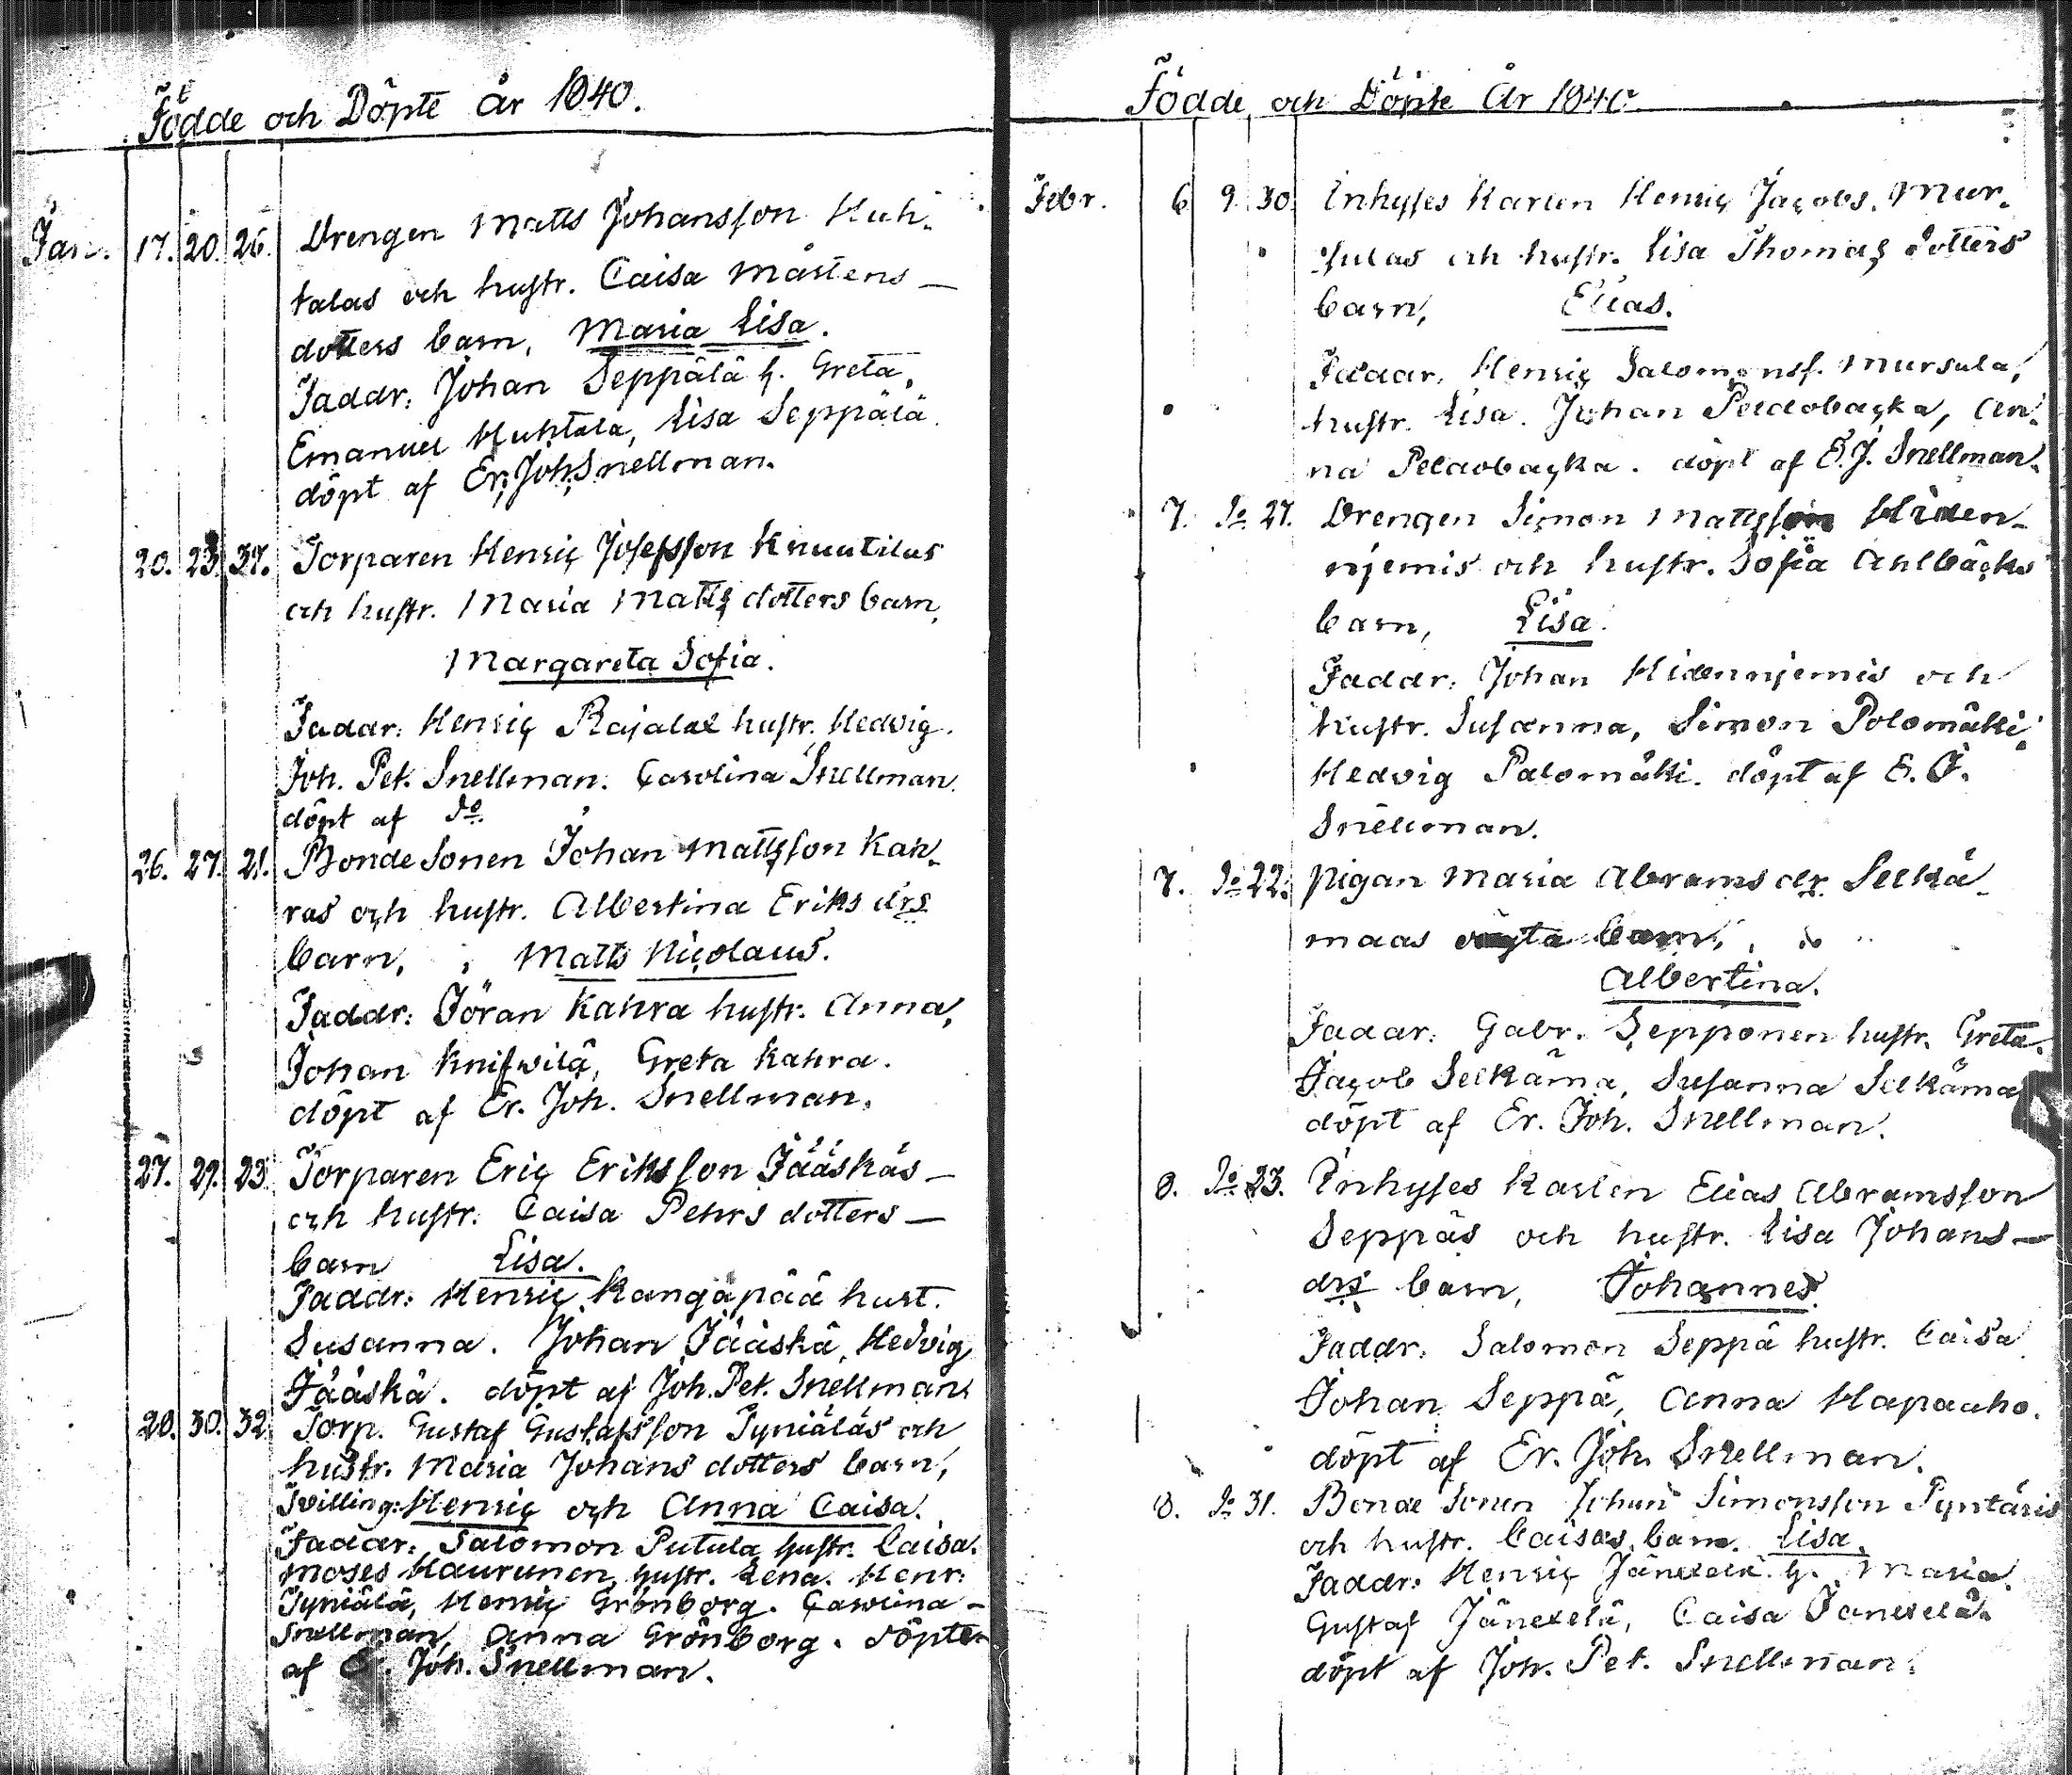 Födde och Döpte År 1840.
Jan. 17. 20. 26. Drengen Matts Johansson Huh-
talas och hustr. Caisa Mårtens-
dotters barn, Maria Lisa.
Faddr: Johan Seppälä h. Greta,
Emanuel Huhtala, Lisa Seppälä.
döpt af Er: Joh: Snellman.
20. 23. 37. Torparen Henric Josefsson Knuutilas
och hustr. Maria Matts dotters barn,
Margareta Sofia.
Faddr: Henric Rajala hustr. Hedvig.
Joh. Pet. Snellman. Carolina Snellman.
döpt af do.
26. 27. 21. Bonde Sonen Johan Mattsson Kah-
ras och hustr. Albertina Eriks drs
barn, Matts Nicolaus.
Faddr: Jöran Kahra hustr. Anna,
Johan Knifwilä, Greta Kahra.
döpt af Er. Joh. Snellman.
27. 29. 23. Torparen Eric Eriksson Jääskäs-
och hustr. Caisa Pehrs dotters-
barn Lisa.
Faddr: Henric Kangäpää hust.
Susanna. Johan Jääskä, Hedvig
Jääskä. döpt af Joh. Pet. Snellman.
28. 30. 32. Torp. Gustaf Gustafsson Tyniäläs och
hustr. Maria Johans dotters barn,
Tvilling: Henric och Anna Caisa.
Faddr: Salomon Putula hustr. Caisa.
Moses Haurunen, hustr. Lena. Henr:
Tyniälä, Henric Grönborg. Carolina-
Snellman, Anna Grönborg. döpte
af Er. Joh. Snellman.
Födde och Döpte År 1840
Febr. 6 9. 30. Inhyses Karlen Henric Jacobs. Mur-
sulas och hustr. Lisa Thomas dotters
barn, Elias.
Faddr. Henric Salomonss. Mursula,
hustr. Lisa. Johan Peldobacka, An-
na Peldobacka. döpt af E. J. Snellman.
7. do 27. Drengen Simon Mattsson Hiden-
njemis och hustr. Sofia Ahlbäcks
barn, Lisa.
Faddr: Johan Hidennjemis och
hustr. Susanna, Simon Polomäki,
Hedvig Palomäki. döpt af E. J.
Snellman.
7. do 22. Pigan Maria Abrams dr Selkä-
maas oägta barn,
Albertina.
Faddr: Gabr. Sepponen hustr. Greta.
Jacob Selkäma, Susanna Selkäma
döpt af Er. Joh. Snellman.
8. do 23. Inhyses Karlen Elias Abramsson
Seppäs och hustr. Lisa Johans-
drs barn, Johannes.
Faddr: Salomon Seppä hustr. Caisa
Johan Seppä, Anna Hapaaho.
döpt af Er. Joh. Snellman.
8. do 31. Bonde Sonen Johan Simonsson Pyntäris
och hustr. Caisas barn. Lisa.
Faddr: Henric Jänexelä h. Maria
Gustaf Jänexelä, Caisa Janexelä.
döpt af Joh. Pet. Snellman.